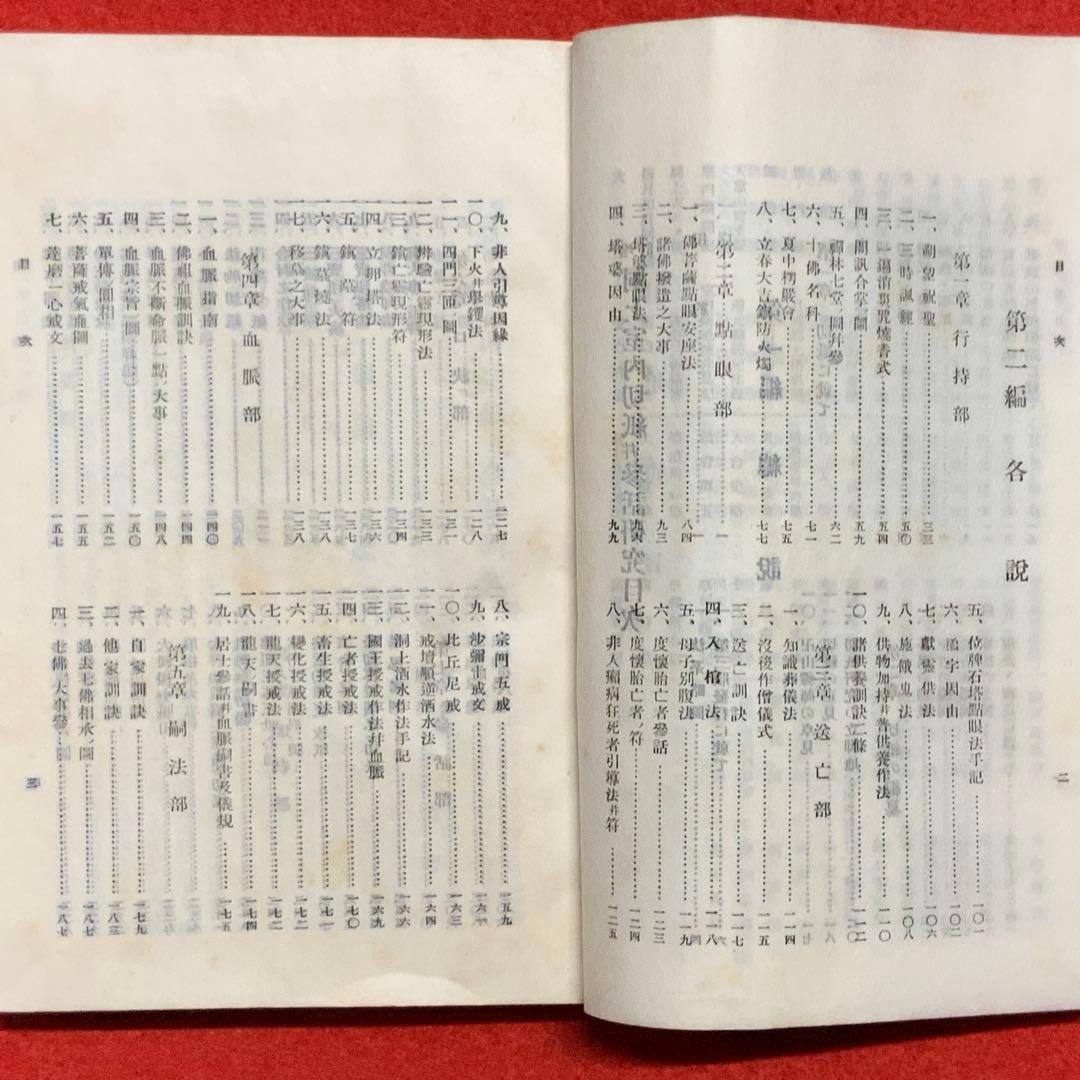 目次
第二編 各説
第一章 行持部
一、朔望祝聖……三三
二、三時諷經……五〇
三、一遍消裏咒燒香式……五四
四、問訊合掌圖……五九
五、禪林七堂ノ圖幷參……六二
六、十佛名科……七一
七、夏中楞嚴會……七五
八、立春大吉鎭防火燭……七七
第二章 點眼部
一、佛菩薩點眼安座法……八四
二、諸佛撥遣之大事……九三
三、塔婆點眼法……九九
四、塔婆因由……九九
五、位牌石塔點眼法手記……一〇一
六、𛀀字因由……一〇二
七、獻靈供法……一〇六
八、施餓鬼法……一〇八
九、供物加持幷普供養作法……一一〇
一〇、諸供養訓訣二條……一一二
第三章 送亡部
一、知識葬儀法……一一四
二、沒後作僧儀式……一一五
三、送亡訓訣……一一七
四、入棺法……一一八
五、母子別腹法……一一九
六、度懷胎亡者參話……一二三
七、度懷胎亡者ノ符……一二四
八、非人癩病狂死者引導法幷符……一二五
二
九、非人引導因緣……一二七
一〇、下火幷擧钁法……一二八
一一、四門三匝ノ圖……一三一
一二、辨驗亡靈現形法……一三三
一三、鎭亡靈現形符……一三四
一四、立卵塔法……一三六
一五、鎭墓ノ符……一三七
一六、鎭墓燒法……一三八
一七、移墓之大事……一三八
第四章 血脈部
一、血脈指南……一四〇
二、佛祖血脈訓訣……一四四
三、血脈不斷命脈一點ノ大事……一四八
四、血脈宗旨ノ圖……一五〇
五、單傳ノ圓相……一五二
六、菩薩戒氣血圖……一五五
七、達磨一心戒文……一五七
八、宗門五戒……一五九
九、沙彌十戒文……一六一
一〇、比丘尼戒……一六三
一一、戒壇順逆洒水法……一六四
一二、洞上洒水作法手記……一六六
一三、國王授戒作法幷血脈……一六九
一四、亡者授戒法……一七〇
一五、畜生授戒法……一七一
一六、變化授戒法……一七二
一七、龍天授戒法……一七二
一八、龍天ノ嗣書……一七四
一九、居士參話幷血脈嗣書及儀規……一七五
第五章 嗣法部
一、自家訓訣……一七九
二、他家訓訣……一八三
三、過去七佛相承ノ圖……一八七
四、七佛ノ大事參……一八七
目次
三